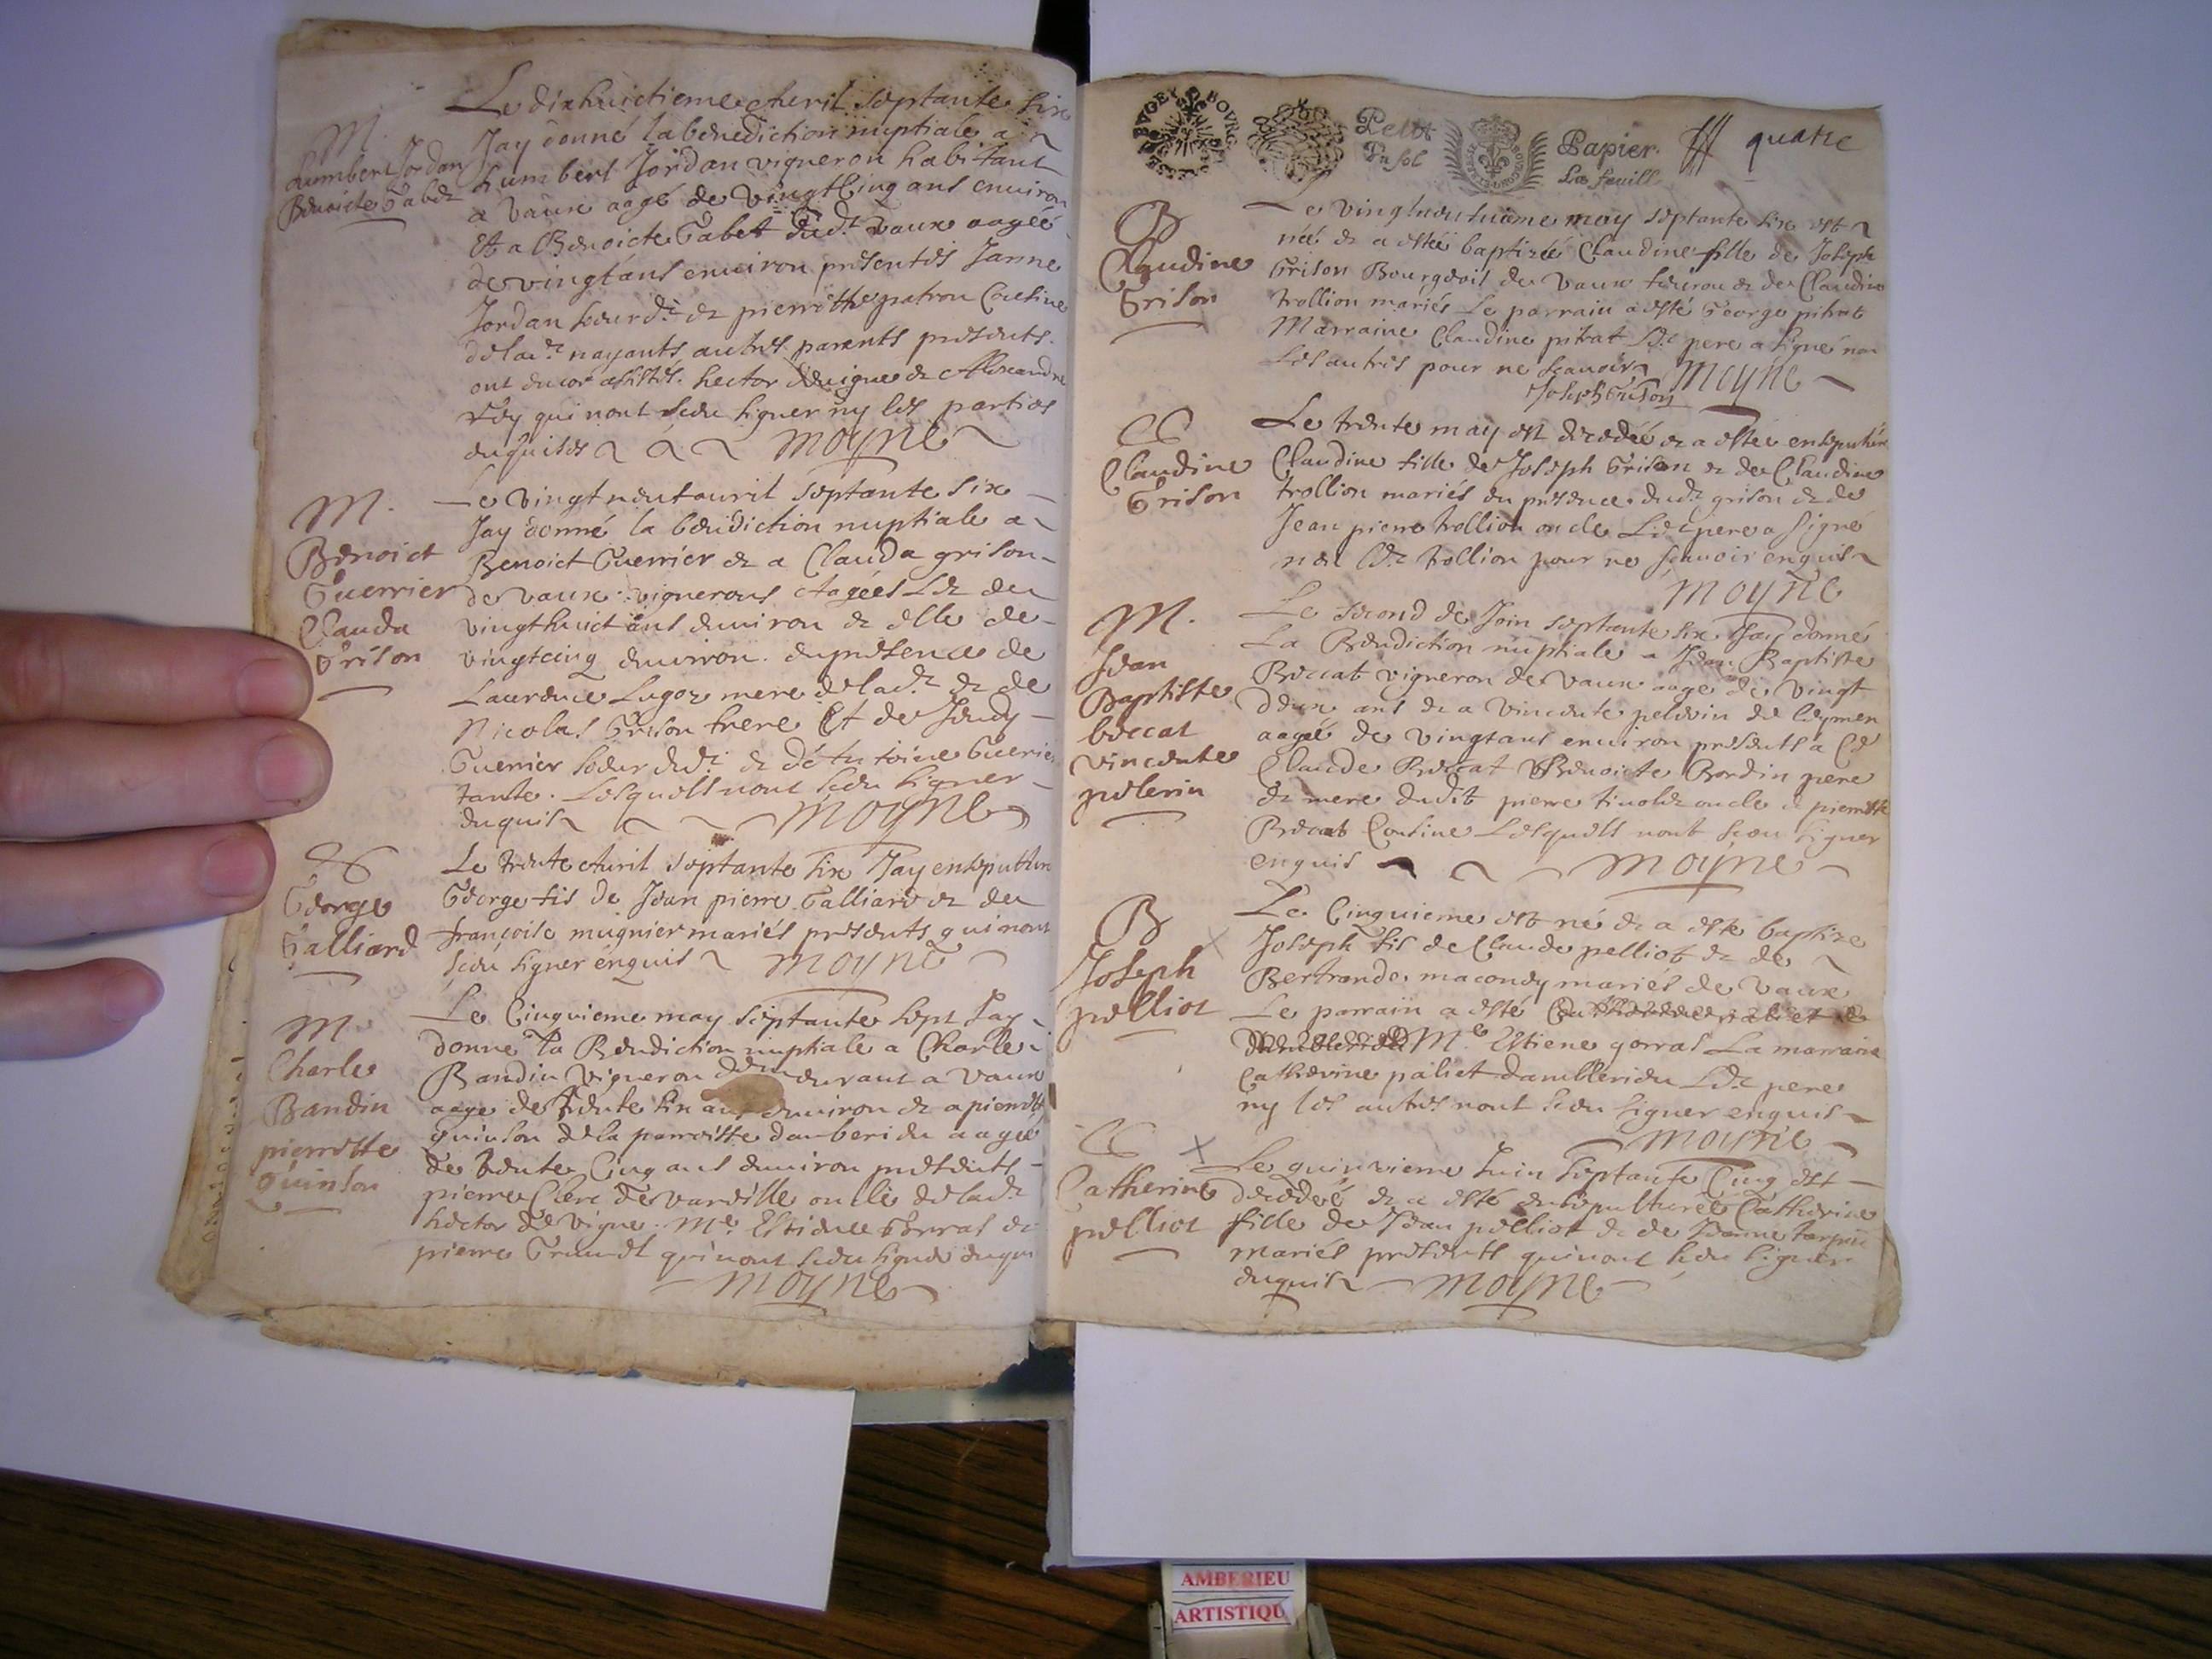 M.
humbert Jordan
Benoicte Gabet
Le dixhuictieme Avril septante six
Jay donné la benediction nuptiale a
humbert Jordan vigneron habitant
a Vaux aagé de vingtcinq ans environ
Et a Benoicte Gabet dud.t vaux aageé
de vingt ans environ presentes Janne
Jordan soeur d.t et pierrotte patron Cousine
de lad.te nayants autres parents presents.
ont encor assistés. hector devigne et Alexandre
Rey qui nont sceu signer ny les parties
enquises
moyne
M.
Benoict
Guerrier
Clauda
Grison
Le vingt neuf avril septante six
Jay donné la benediction nuptiale a
Benoict Guerrier et a Clauda grison
de vaux vignerons Aageés Led. de
vingthuict ans environ et elle de
vingtcinq environ. en presence de
Laurence Lugoz mere de lad.te et de
Nicolas Grison frere Et de Jeudy
Guerrier soeur dud.t et d'Antoine Guerrier
tante. Lesquels nont sceu signer
enquis
moyne
George
Galliard
Le trente Avril septante six Jay ensepulturé
George fis de Jean pierre Galliard et de
françoise mugnier mariés presents qui nont
sceu signer enquis
moyne
M.
Charle
Bandin
pierrette
Quinson
Le Cinquieme may septante sept Jay
donne la Benediction nuptiale a Charle
Bandin vigneron demeurant a Vaux
aage de trente six ans environ et a pierrette
quinson de la parroisse damberieu aageé
de trente Cinq ans environ presents
pierre Clerc de vareille oncle de lad.te
hector de vigne. M.e Estienne Gorras et
pierre Grandt qui nont sceu signer enquis
moyne
BVGEY BOVRG
Petit
Du sol
Papier.
La feuill
quatre
B
Claudine
Grison
Le vingtneufuieme may septante six est
neé et a esteé baptizeé Claudine fille de Joseph
Grison Bourgeois de Vaux feurou et de Claudine
trollion mariés Le parrain a esté George pitrat
Marraine Claudine pitrat Led. pere a signé non
Les autres pour ne scavoir
Joseph Grison
moyne
Claudine
Grison
Le trente may est decedeé et a esteé ensepulturé
Claudine fille de Joseph Grison et de Claudine
trollion mariés en presence dud.t grison et de
Jean pierre trollion oncle Led. pere a signé
non led.t trollion pour ne scavoir enquis
moyne
M.
Jean
Baptiste
boccat
vincente
pelerin
Le second de Join septante six Jay donné
La Benediction nuptiale a Jean Baptiste
Boccat vigneron de Vaux aage de vingt
deux ans et a vincente pelerin de leymen
aageé de vingt ans environ presents a Ce
Claude Boccat Benoicte Bordin pere
et mere dudit pierre tinolet oncle et pierrette
Boccat Cousine Lesquels nont sceu signer
enquis
moyne
B
Joseph
pelliot
Le Cinquieme est né et a esté baptize
Joseph fis de Claude pelliot et de
Bertrande macondy mariés de Vaux
Le parrain a esté
M.e Estiene gorras La marraine
Catherine paliet dambleridu Led.t pere
ny les autres nont sceu signer enquis
moyne
Catherine
pelliot
Le quinzieme Juin septante Cinq est
decedeé et a esté ensepultureé Catherine
fille de Jean pelliot et de Jeanne
mariés presents qui nont sceu signer
enquis
moyne
AMBERIEU
ARTISTIQU